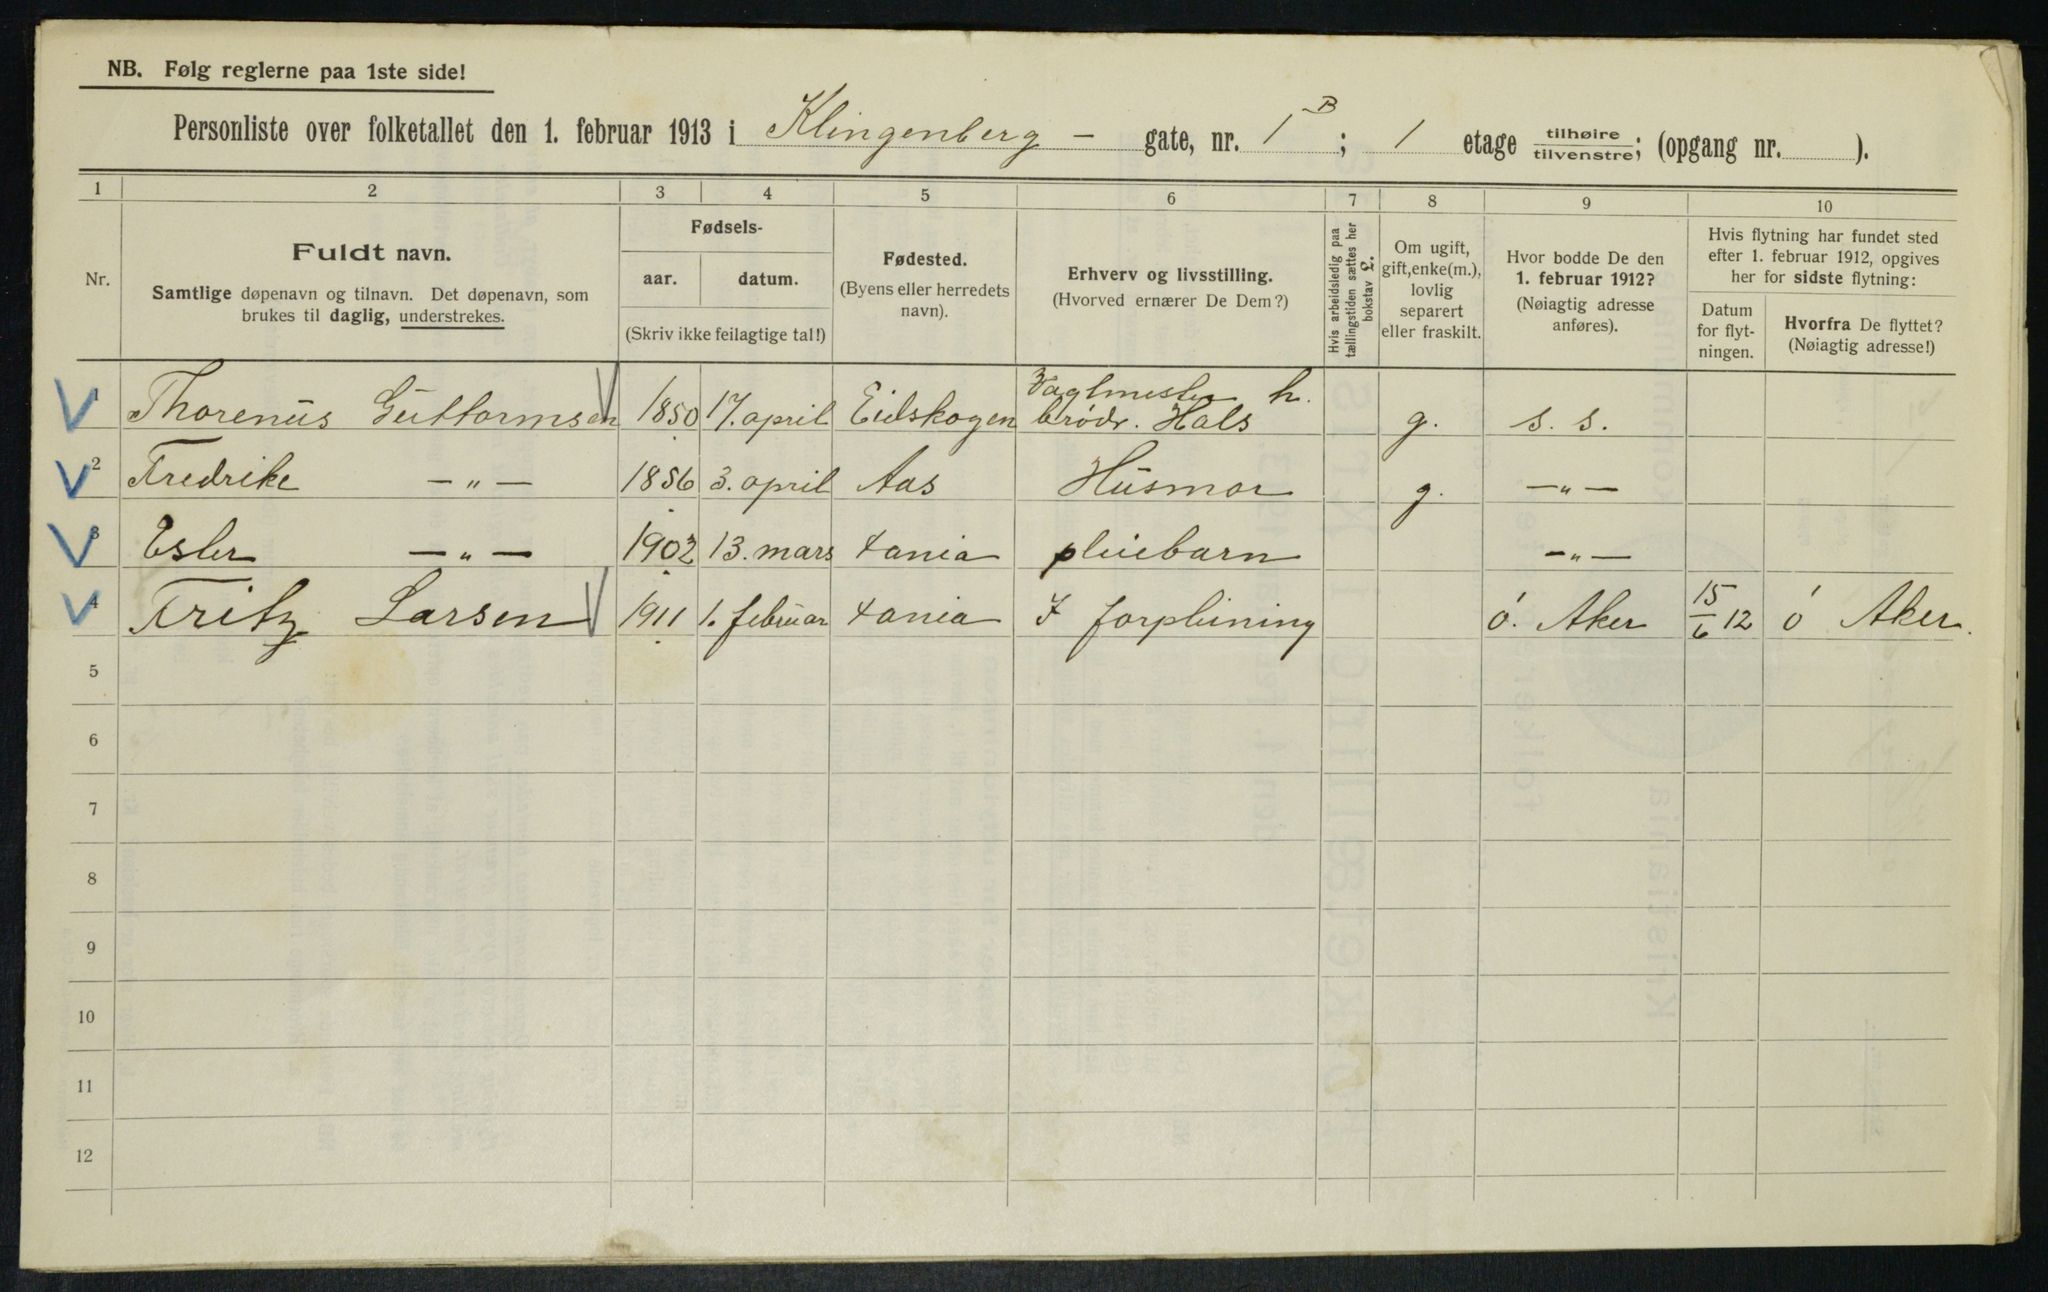 NB. Følg reglerne paa 1ste side!
Personliste over folketallet den 1. februar 1913 i Klingenberg - gate, nr. 1 B ; 1 etage tilhøire tilvenstre; (opgang nr. ).
1 2 3 4 5 6 7 8 9 10
Nr.
Fuldt navn.
Samtlige døpenavn og tilnavn. Det døpenavn, som
brukes til daglig, understrekes.
Fødsels-
aar. datum.
(Skriv ikke feilagtige tal!)
Fødested.
(Byens eller herredets
navn).
Erhverv og livsstilling.
(Hvorved ernærer De Dem?)
Hvis arbeidsledig paa
tællingstiden sættes her
bokstav £.
Om ugift,
gift, enke(m.),
lovlig
separert
eller fraskilt.
Hvor bodde De den
1. februar 1912?
(Nøiagtig adresse
anføres).
Hvis flytning har fundet sted
efter 1. februar 1912, opgives
her for sidste flytning:
Datum
for flyt-
ningen.
Hvorfra De flyttet?
(Nøiagtig adresse!)
1 Thorenus Guttormsen 1850 17. april Eidskogen Vagtmester h. brødr. Hals g. s. s.
2 Fredrike — " — 1856 3. april Aas Husmor g. — " —
3 Ester — " — 1902 13. mars Xania pleiebarn — " —
4 Fritz Larsen 1911 1. februar Xania I forpleining Ö. Aker 15/6 12 Ö Aker.
5
6
7
8
9
10
11
12